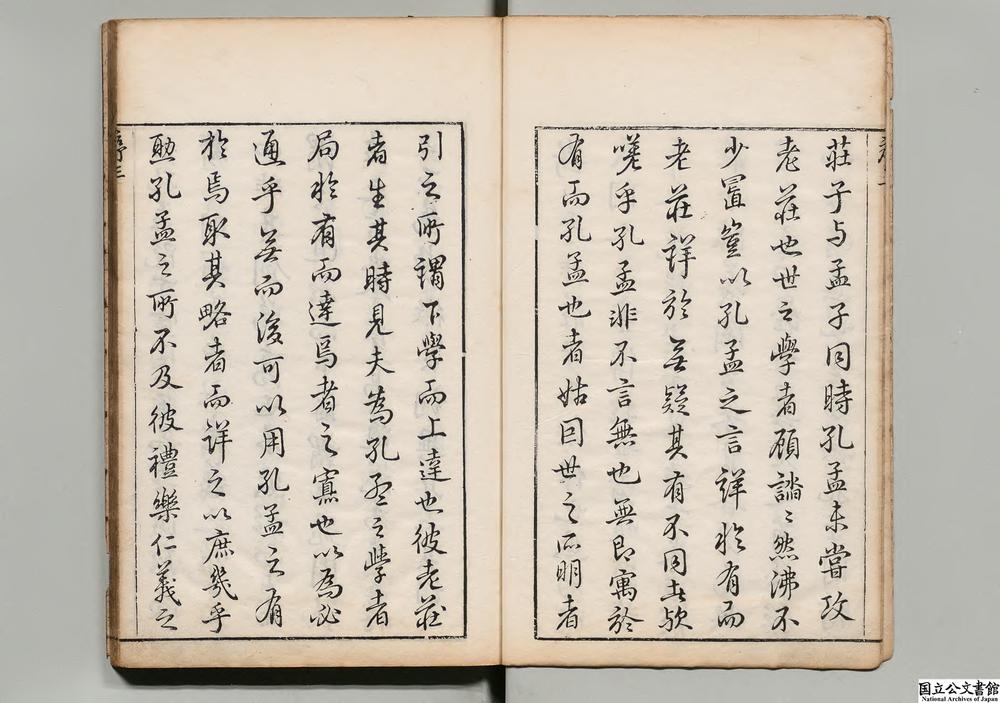 莊子与孟子同時孔孟未嘗攻
老莊也世之學者顧譊〻然沸不
少置豈以孔孟之言詳於有而
老莊詳於無疑其有不同者歟
嗟乎孔孟非不言無也無即寓於
有而孔孟也者姑因世之所明者
引之所謂下學而上達也彼老莊
者生其時見夫為孔孟之學者
局於有而達焉者之寡也以為必
通乎無而後可以用孔孟之有
於焉取其略者而詳之以庶幾乎
助孔孟之所不及彼禮樂仁義之
序三
国立公文書館
National Archives of Japan